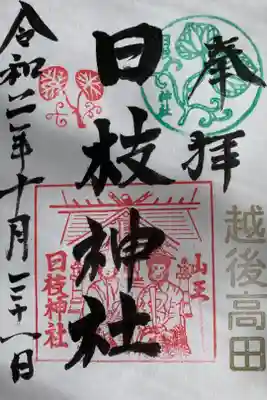 奉拝
越後高田
日枝神社
山王
日枝神社
令和二年十月三十一日